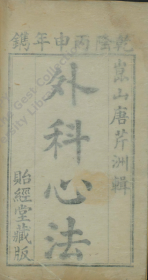 乾隆丙申年鐫
嵩山唐芹洲輯
外科心法
貽經堂藏版